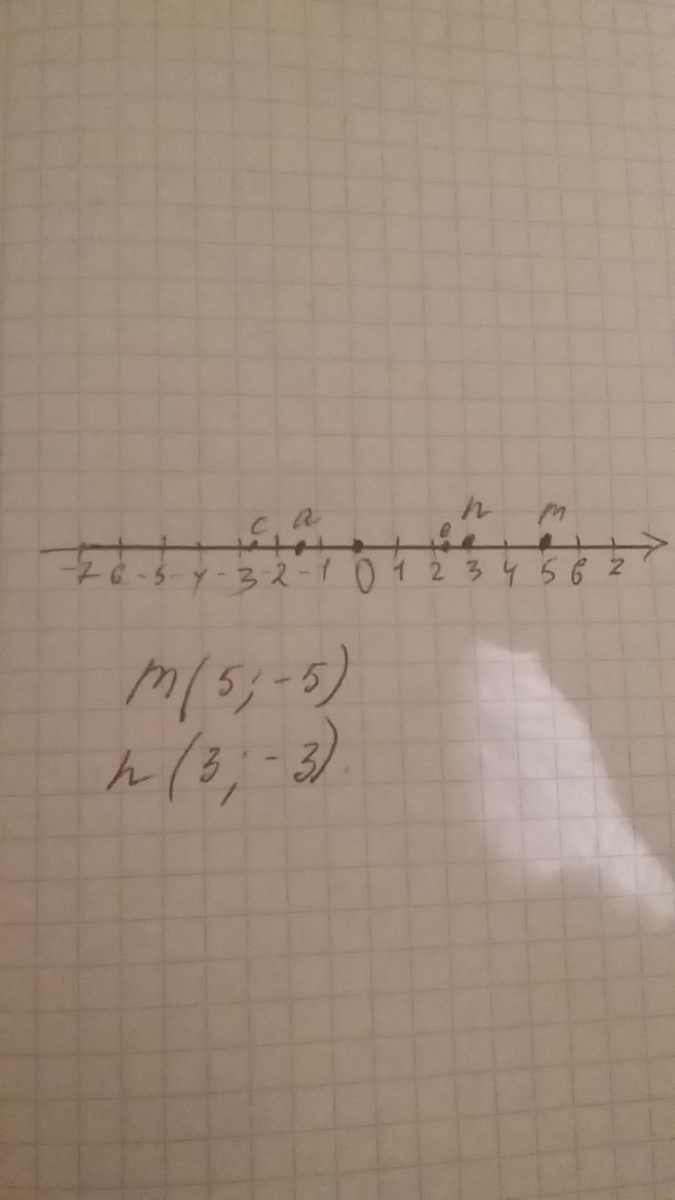 c a e n m
-7 6 -5 -4 -3 -2 -1 0 1 2 3 4 5 6 7
m(5; -5)
n(3; -3).